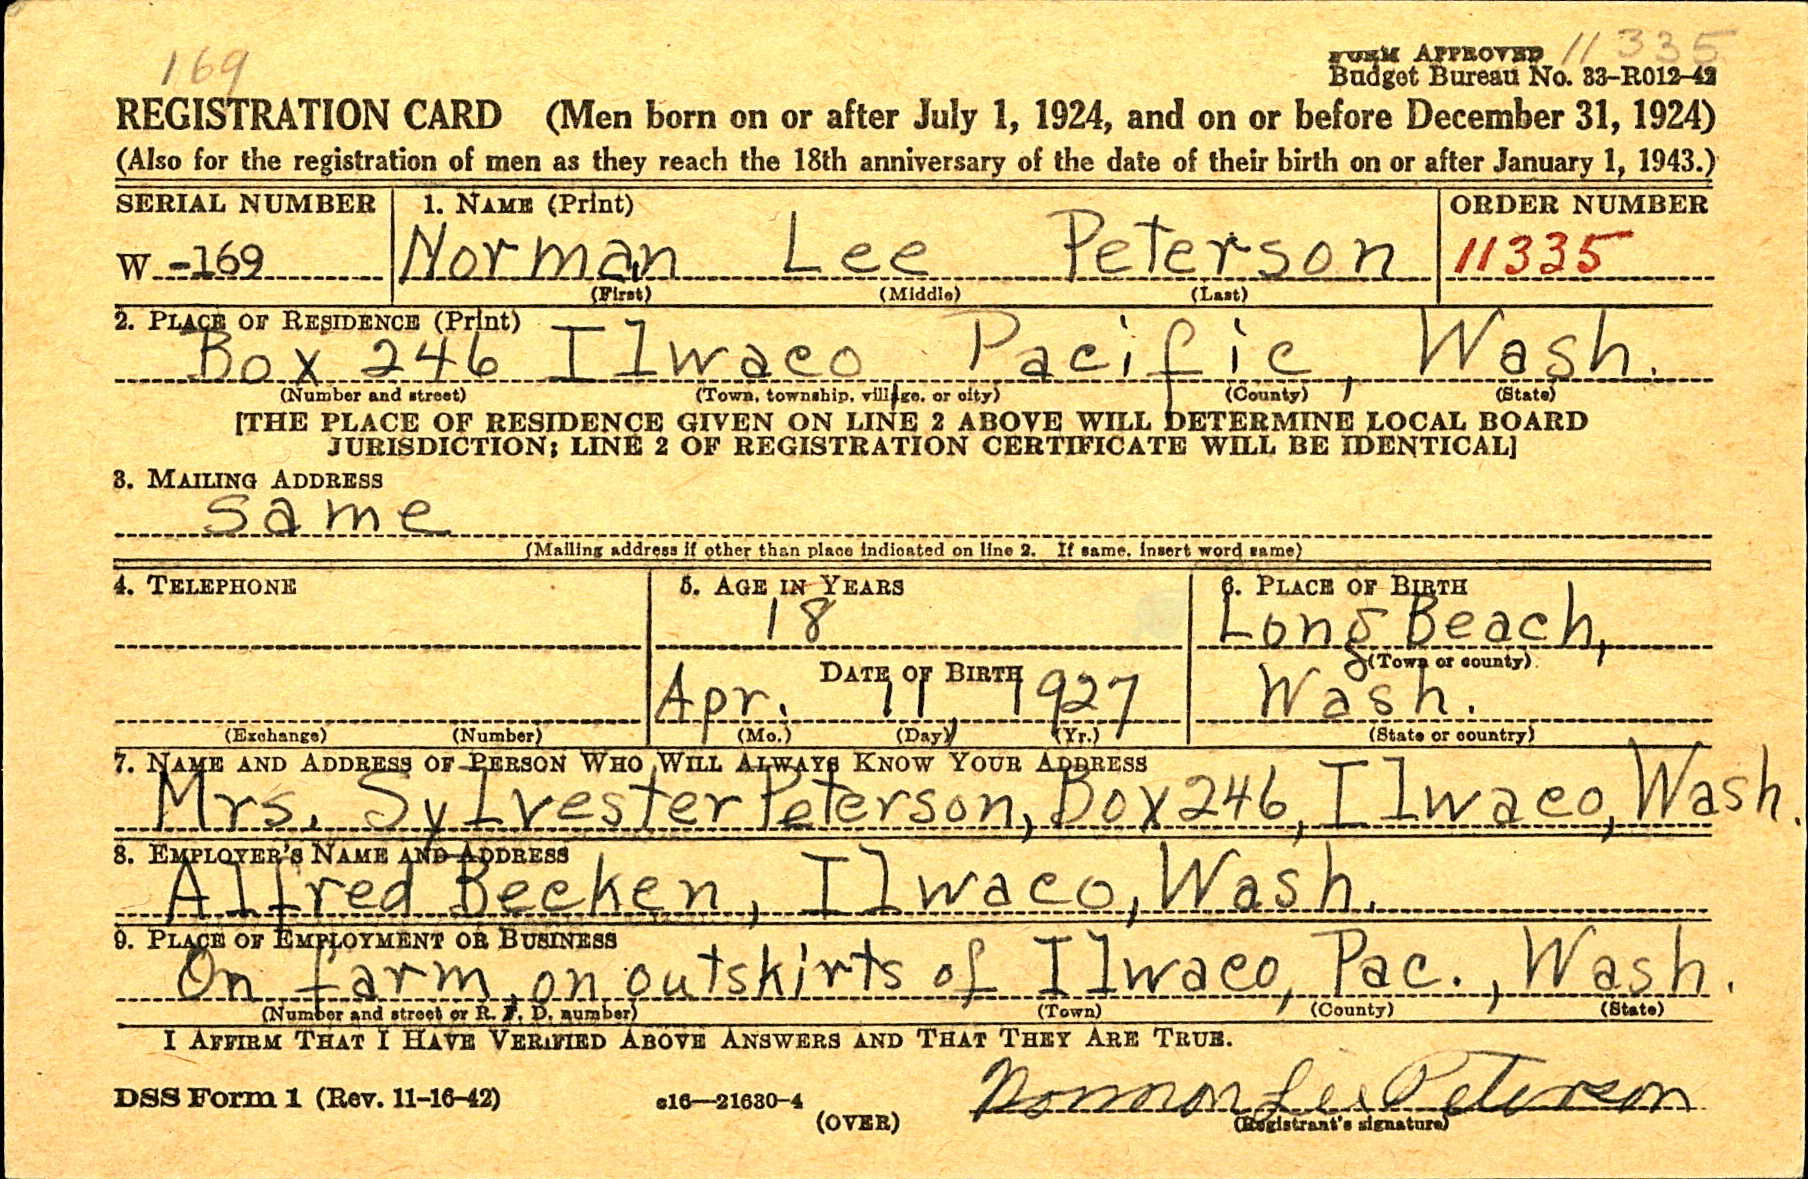 169
11335
FORM APPROVED
Budget Bureau No. 33–R012–42
REGISTRATION CARD (Men born on or after July 1, 1924, and on or before December 31, 1924)
(Also for the registration of men as they reach the 18th anniversary of the date of their birth on or after January 1, 1943.)
SERIAL NUMBER 1. NAME (Print) ORDER NUMBER
W -169 Norman Lee Peterson 11335
(First) (Middle) (Last)
2. PLACE OF RESIDENCE (Print)
Box 246 Ilwaco Pacific, Wash.
(Number and street) (Town, township, village, or city) (County) (State)
[THE PLACE OF RESIDENCE GIVEN ON LINE 2 ABOVE WILL DETERMINE LOCAL BOARD
JURISDICTION; LINE 2 OF REGISTRATION CERTIFICATE WILL BE IDENTICAL]
3. MAILING ADDRESS
same
(Mailing address if other than place indicated on line 2. If same, insert word same)
4. TELEPHONE 5. AGE IN YEARS 6. PLACE OF BIRTH
18 Long Beach,
DATE OF BIRTH (Town or county)
Apr. 11, 1927 Wash.
(Exchange) (Number) (Mo.) (Day) (Yr.) (State or country)
7. NAME AND ADDRESS OF PERSON WHO WILL ALWAYS KNOW YOUR ADDRESS
Mrs. Sylvester Peterson, Box 246, Ilwaco, Wash.
8. EMPLOYER'S NAME AND ADDRESS
Alfred Becken, Ilwaco, Wash.
9. PLACE OF EMPLOYMENT OR BUSINESS
On farm, on outskirts of Ilwaco, Pac., Wash.
(Number and street or R. F. D. number) (Town) (County) (State)
I AFFIRM THAT I HAVE VERIFIED ABOVE ANSWERS AND THAT THEY ARE TRUE.
DSS Form 1 (Rev. 11-16-42) s16—21630-4 Norman Lee Peterson
(OVER) (Registrant's signature)